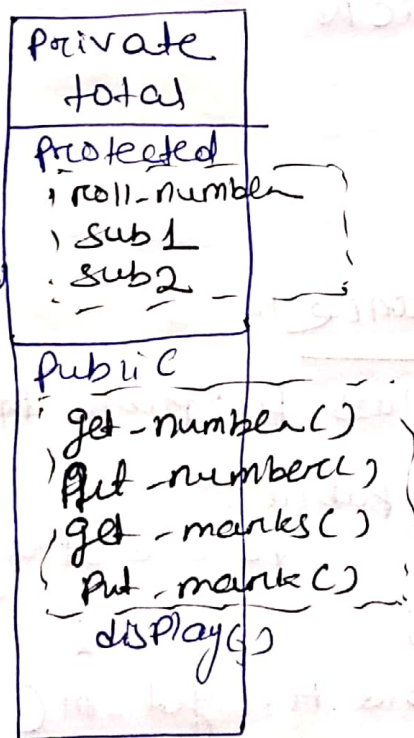 Private
total
Protected
roll-number
sub1
sub2
Public
get-number()
Put-number()
get-marks()
Put-mark()
display()